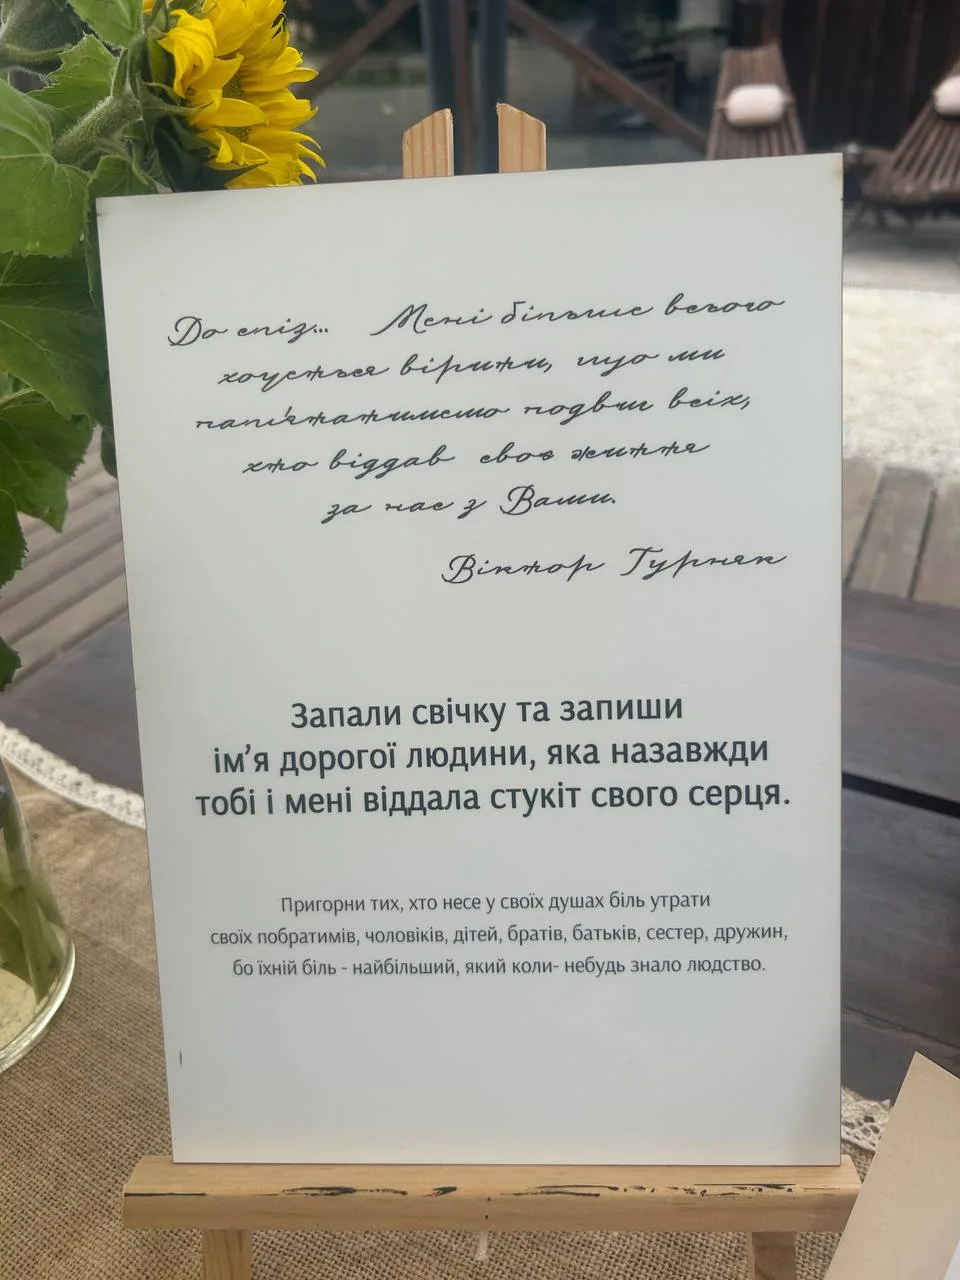 До сліз... Мені більше всього
хочеться вірити, що ми
пам'ятатимемо подвиг всіх,
хто віддав своє життя
за нас з Вами.
Віктор Гурняк
Запали свічку та запиши
ім’я дорогої людини, яка назавжди
тобі і мені віддала стукіт свого серця.
Пригорни тих, хто несе у своїх душах біль утрати
своїх побратимів, чоловіків, дітей, братів, батьків, сестер, дружин,
бо їхній біль - найбільший, який коли- небудь знало людство.